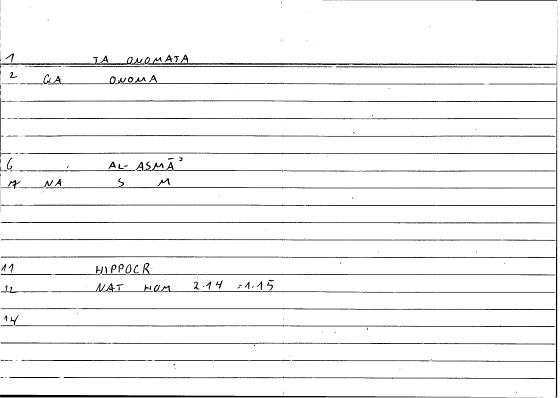 1 TA ONOMATA
2 GA ONOMA
6 AL-ASMĀʾ
7 NA S M
11 HIPPOCR.
12 NAT HOM 2.14 =1.15
14